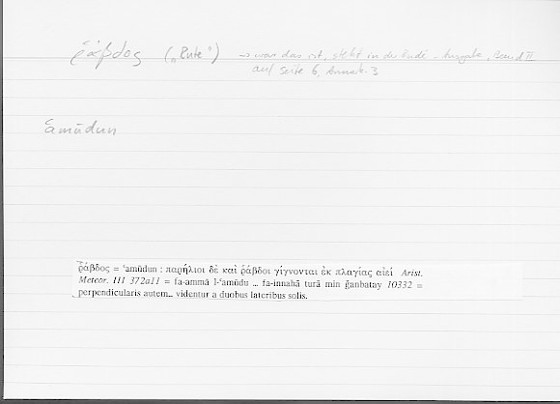 ῥάβδος („Rute“) → was das ist, steht in der Budé-Ausgabe, Band II
auf Seite 6, Anmerk. 3
ʿamūdun
ῥάβδος = ʿamūdun : παρήλιοι δὲ καὶ ῥάβδοι γίγνονται ἐκ πλαγίας αἰεὶ Arist.
Meteor. III 372a11 = fa-ammā l-ʿamūdu ... fa-innahā turā min ǧanbatay 10332 =
perpendicularis autem... videntur a duobus lateribus solis.